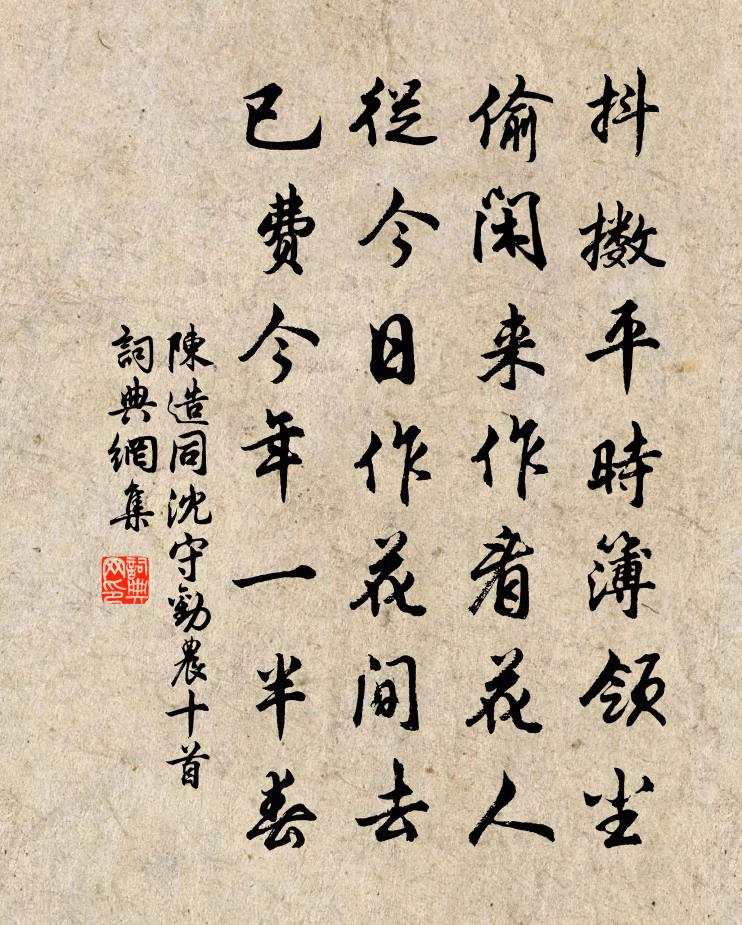 抖擻平時簿領尘
偷閑来作看花人
從今日作花間去
已费今年一半春
陳造同沈守勸農十首
詞典網集
詞典网印